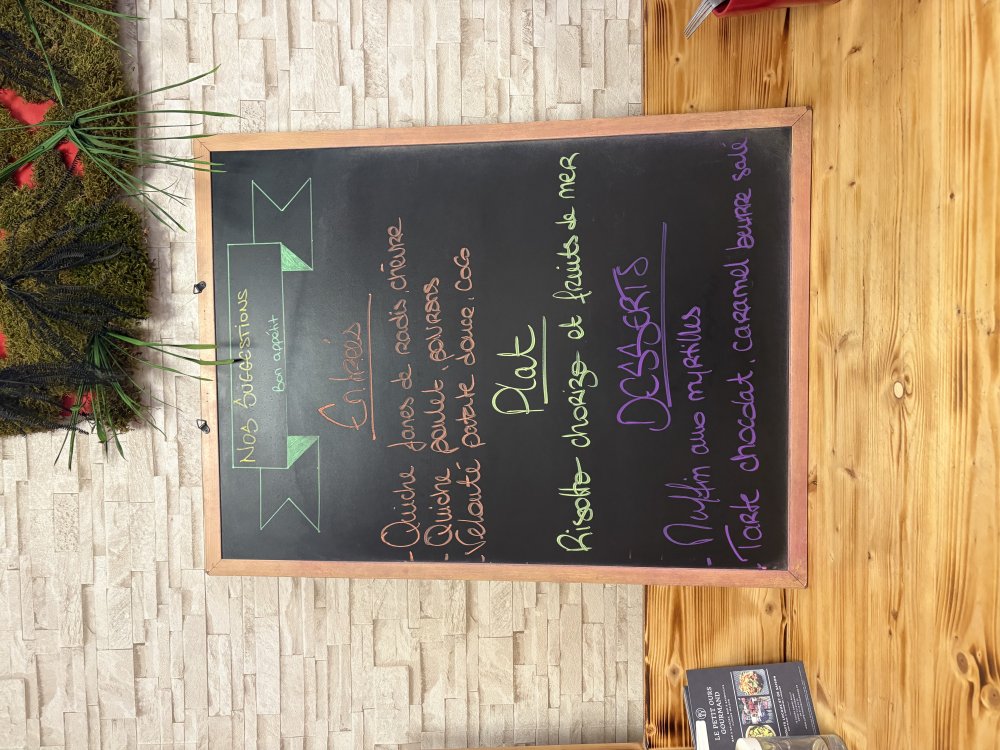 NOS SUGGESTIONS
Bon appétit
Entrées
- Quiche fanes de radis, chèvre
- Quiche poulet, poivrons
- Velouté patate douce, coco
Plat
Risotto chorizo et fruits de mer
DESSERTS
- Muffin aux myrtilles
- Tarte chocolat, caramel beurre salé
LE PETIT OURS
GOURMAND